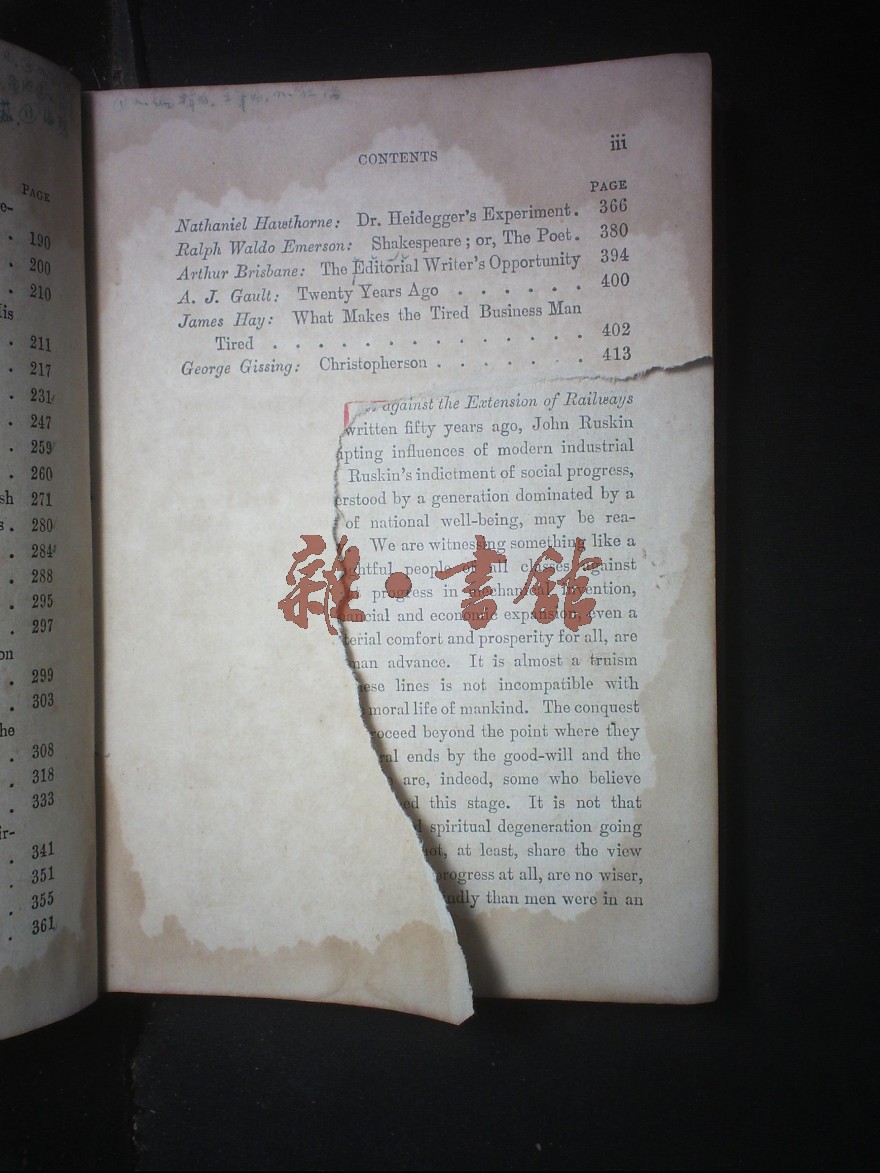 PAGE
e-
. 190
. 200
. 210
. 211
. 217
. 231
. 247
. 259
. 260
sh 271
s. 280
. 284
. 288
. 295
. 297
on
. 299
. 303
he
. 308
. 318
. 333
ir-
. 341
. 351
. 355
. 361
CONTENTS
iii
PAGE
Nathaniel Hawthorne: Dr. Heidegger's Experiment. 366
Ralph Waldo Emerson: Shakespeare; or, The Poet. 380
Arthur Brisbane: The Editorial Writer's Opportunity 394
A. J. Gault: Twenty Years Ago . . . . . . 400
James Hay: What Makes the Tired Business Man
Tired . . . . . . . . . . . . . 402
George Gissing: Christopherson . . . . . . . 413
against the Extension of Railways
written fifty years ago, John Ruskin
pting influences of modern industrial
Ruskin's indictment of social progress,
erstood by a generation dominated by a
of national well-being, may be rea-
We are witnessing something like a
ghtful people of all classes against
progress in mechanical invention,
ancial and economic expansion, even a
terial comfort and prosperity for all, are
man advance. It is almost a truism
ese lines is not incompatible with
moral life of mankind. The conquest
roceed beyond the point where they
ral ends by the good-will and the
are, indeed, some who believe
ed this stage. It is not that
spiritual degeneration going
not, at least, share the view
progress at all, are no wiser,
indly than men were in an
雜·書館